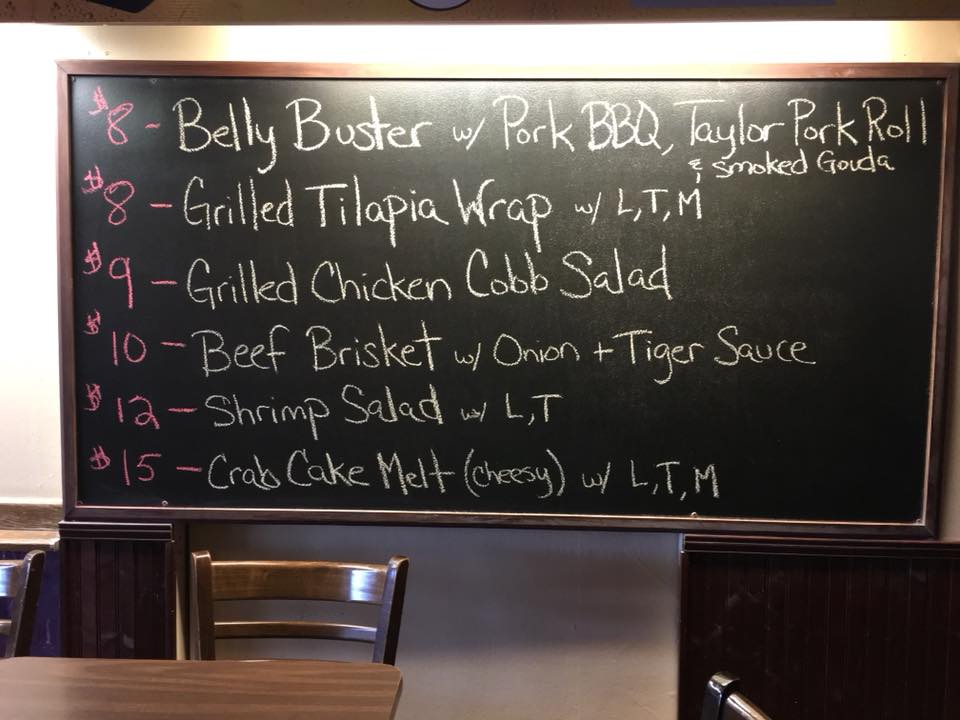 $8 - Belly Buster w/ Pork BBQ, Taylor Pork Roll
& smoked Gouda
$8 - Grilled Tilapia Wrap w/ L,T,M
$9 - Grilled Chicken Cobb Salad
$10 - Beef Brisket w/ Onion + Tiger Sauce
$12 - Shrimp Salad w/ L,T
$15 - Crab Cake Melt (cheesy) w/ L,T,M